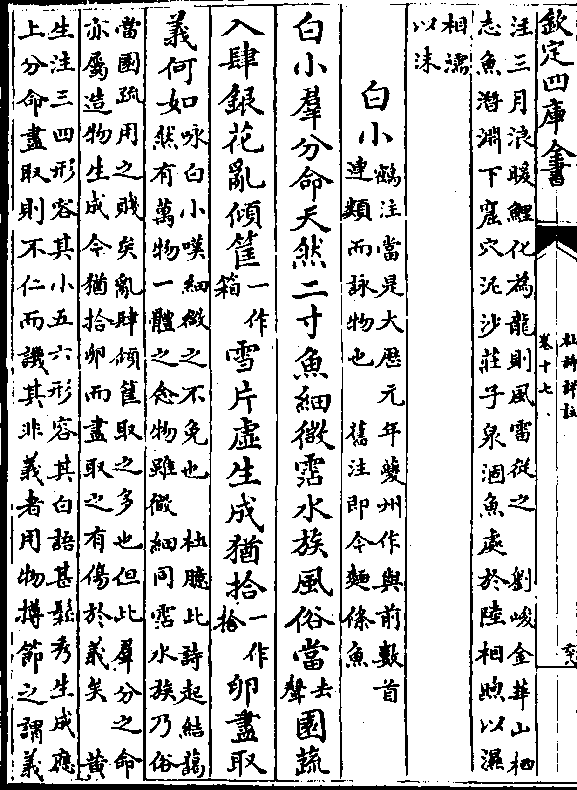 欽定四庫全書
杜詩詳註
卷十七
注三月浪暖鯉化為龍則風雷從之 劉峻金華山栖
志魚潛淵下窟穴泥沙莊子泉涸魚處於陸相喣以濕
相濡
以沫
白小
鶴注當是大厯元年夔州作與前數首
連類而詠物也 舊注即今麵條魚
白小羣分命天然二寸魚細微霑水族風俗當去聲園蔬
入肆銀花亂傾筐一作箱雪片虛生成猶拾一作捨卵盡取
義何如
咏白小嘆細微之不免也 杜臆此詩起結藹
然有萬物一體之念物雖微細同霑水族乃俗
當園疏用之賤矣亂肆傾筐取之多也但此羣分之命
亦屬造物生成今猶拾卵而盡取之有傷於義矣 黄
生注三四形容其小五六形容其白語甚鬆秀生成應
上分命盡取則不仁而譏其非義者用物撙節之謂義